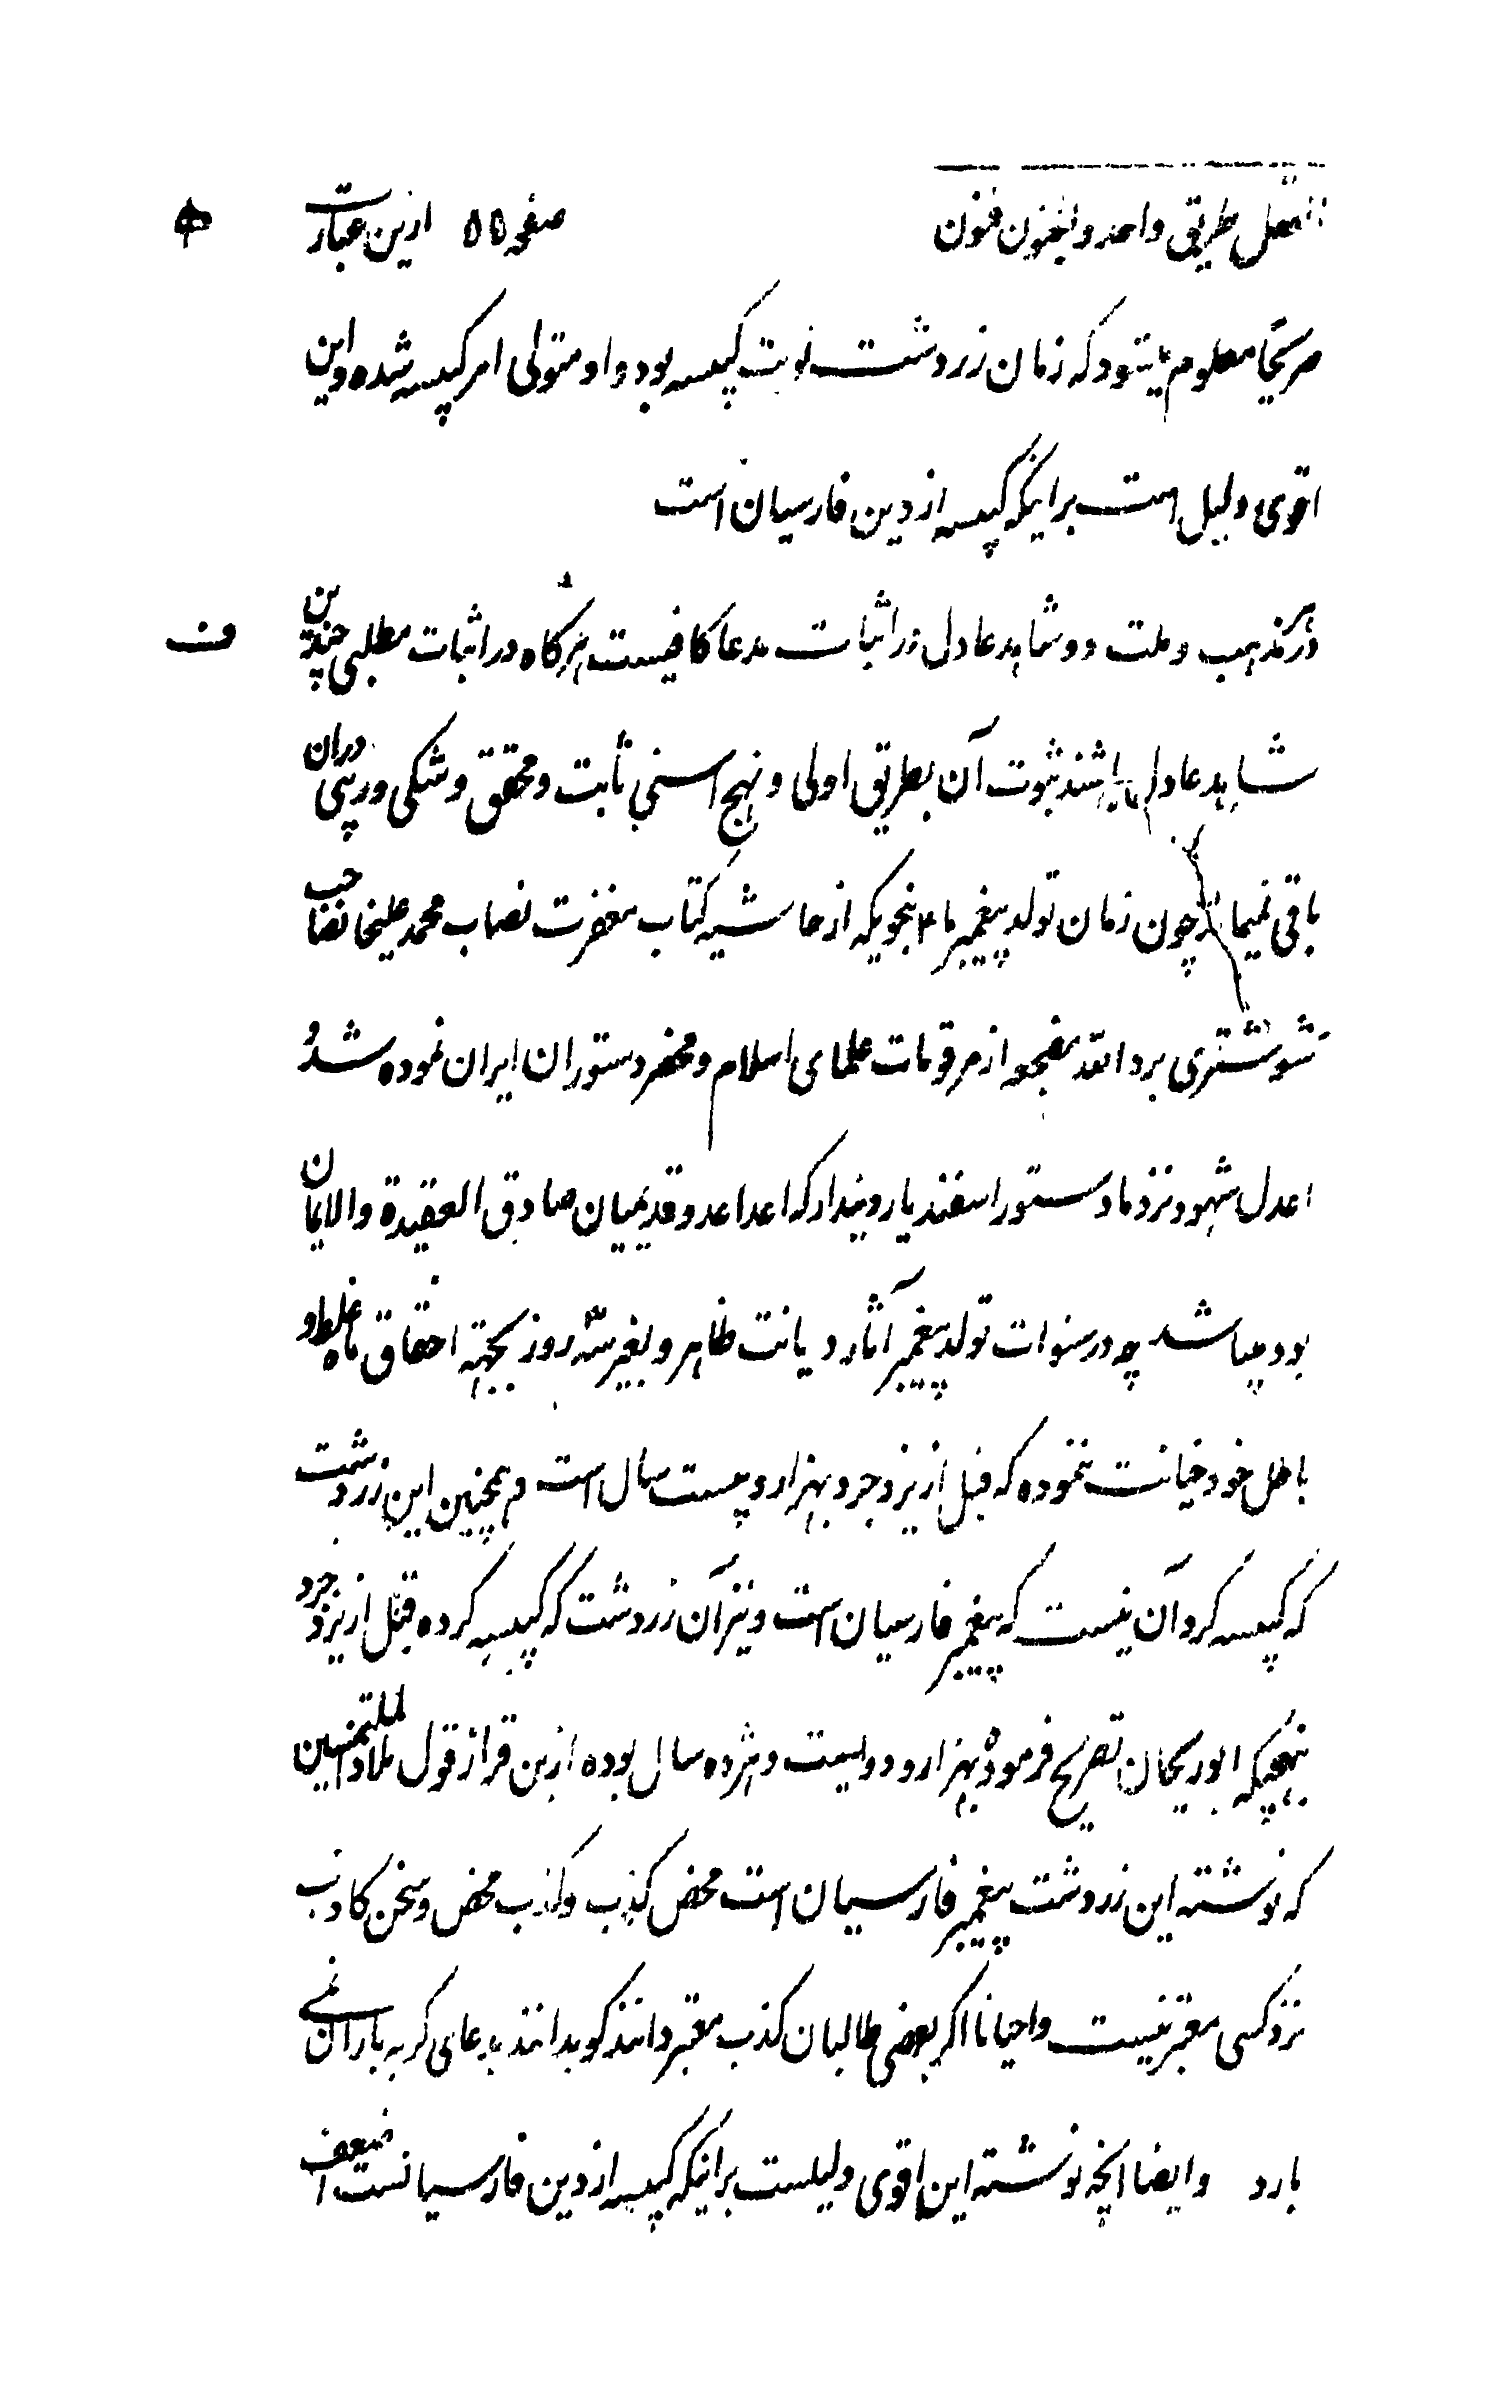 للعقل طریق واحد و للجنون فنون صفحه ۵۵ ازین عبارت
صریحا معلوم میشود که زمان زردشت نوبت کبیسه بود و او متولی امر کبیسه شده و این
اقوی دلیل است برانیکه کبیسه از دین فارسیان است
در هر مذهب و ملت دو شاهد عادل در اثبات مدعا کافیست هرگاه در اثبات مطلبی چندین
شاهد عادل باشند ثبوت آن بطریق اولی و نهج اسنی ثابت و محقق و شکی و ریبی دران
باقی نمیماند چون زمان تولد پیغمبر ما بنحویکه از حاشیه کتاب مغفرت نصاب محمد علیخانصاحب
شوشتری برد الله مضجعه از مرقومات علمای اسلام و محضر دستوران ایران نموده شد و
اعدل شهود نزد ما دستور اسفندیار دیندار که اعدا عدو قدیمیان صادق العقیده والایمان
بود میباشد چه در سنوات تولد پیغمبر آثار دیانت ظاهر و بغیر سه روز بجهته اخفاق ماه غلط و
باطل خود خیانت ننموده که قبل از یزدجرد بهزار و بیست سال است و همچنین این زردشت
که کبیسه کرد آن نیست که پیغمبر فارسیان است و نیز آن زردشت که کبیسه کرده قبل از یزدجرد
بنهجیکه ابوریحان تصریح فرموده بهزار و دویست و هژده سال بوده ازین قرار قول
که نوشته این زردشت پیغمبر فارسیان است محض کذب و کذب محض و سخن کاذب
نزد کسی معتبر نیست و احیانا اگر بعضی طالبان کذب معتبر دانند کو بدانند بدعای گربه باران نمی
بارد و ایضا انچه نوشته این اقوی دلیلست برانیکه کبیسه از دین فارسیانست اضعف